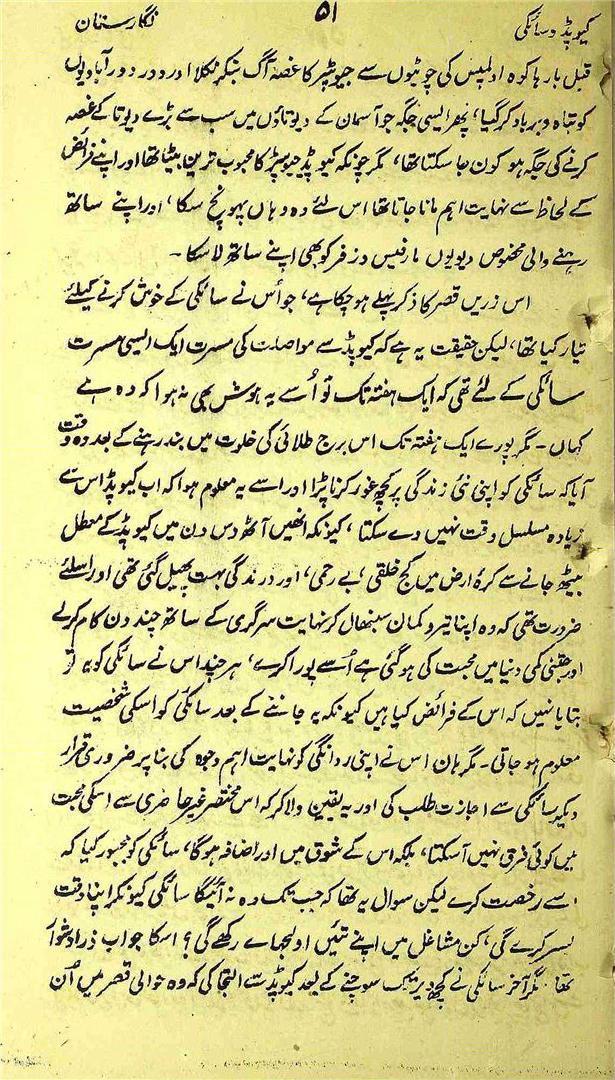 کیوپڈ و سائکی
۵۱
نگارستان
قبل بارہا کوہ اولمپس کی چوٹیوں سے جیوپٹر کا غصہ آگ بنکر نکلا اور دور دور آبادیوں
کو تباہ و برباد کر گیا، پھر ایسی جگہ جو آسمان کے دیوتاؤں میں سب سے بڑے دیوتا کے غصہ
کرنے کی جگہ ہو کون جا سکتا تھا، مگر چونکہ کیوپڈ جیوپٹر کا محبوب ترین بیٹا تھا اور اپنے فرائض
کے لحاظ سے نہایت اہم مانا جاتا تھا اس لئے وہ وہاں پہونچ سکا، اور اپنے ساتھ
رہنے والی مخصوص دیویوں مارفیس و زفر کو بھی اپنے ساتھ لا سکا۔
اس زریں قصر کا ذکر پہلے ہو چکا ہے، جو اُس نے سائکی کے خوش کرنے کیلئے
تیار کیا تھا، لیکن حقیقت یہ ہے کہ کیوپڈ سے مواصلت کی مسرت ایک ایسی مسرت
سائکی کے لئے تھی کہ ایک ہفتہ تک تو اُسے یہ ہوش بھی نہ ہوا کہ وہ ہے
کہاں۔ مگر پورے ایک ہفتہ تک اس برج طلائی کی خلوت میں بند رہنے کے بعد وہ وقت
آیا کہ سائکی کو اپنی نئی زندگی پر کچھ غور کرنا پڑا اور اسے یہ معلوم ہوا کہ اب کیوپڈ اس سے
زیادہ مسلسل وقت نہیں دے سکتا، کیونکہ انھیں آٹھ دس دن میں کیوپڈ کے معطل
بیٹھ جانے سے کرۂ ارض میں کج خلقی، بے رحمی، اور درندگی بہت پھیل گئی تھی اور اسلئے
ضرورت تھی کہ وہ اپنا تیر و کمان سنبھال کر نہایت سرگری کے ساتھ چند دن کام کرلے
اور جتنی کمی دنیا میں محبت کی ہو گئی ہے اُسے پورا کرے، ہر چند اس نے سائکی کو یہ تو
بتایا نہیں کہ اس کے فرائض کیا ہیں کیونکہ یہ جاننے کے بعد سائکی کو اسکی شخصیت
معلوم ہو جاتی۔ مگر ہاں اس نے اپنی روانگی کو نہایت اہم وجوہ کی بنا پر ضروری قرار
دیکر سائکی سے اجازت طلب کی اور یہ یقین دلا کر کہ اس مختصر غیر حاضری سے اسکی محبت
میں کوئی فرق نہیں آ سکتا، بلکہ اس کے شوق میں اور اضافہ ہوگا، سائکی کو مجبور کیا کہ
اسے رخصت کرے لیکن سوال یہ تھا کہ جب تک وہ نہ آئیگا سائکی کیونکر اپنا وقت
بسر کرے گی، کن مشاغل میں اپنے تئیں اولجھاے رکھے گی؟ اسکا جواب ذرا دشوار
تھا۔ مگر آخر سائکی نے کچھ دیر تک سوچنے کے بعد کیوپڈ سے التجا کی کہ وہ حوالی قصر میں اُن